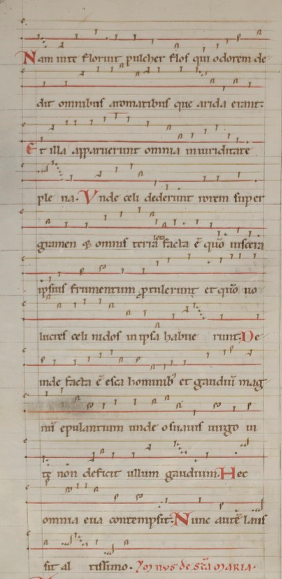 Nam in te floruit pulcher flos qui odorem de
dit omnibus aromatibus que arida erant.
Et illa apparuerunt omnia in uiriditate
ple na. Vnde celi dederunt rorem super
gramen & omnis terra leta facta ē quo uiscera
ipsius frumentum ꝓtulerunt et quō uo
lucres celi nidos in ipsa habue runt. De
inde facta ē esca hominib; et gaudiū mag
nū epulantium unde o suauis uirgo in
te non deficit ullum gaudium. Hec
omnia eua contempsit. Nunc autē laus
sit al tissimo. Ymnus de scā maria.